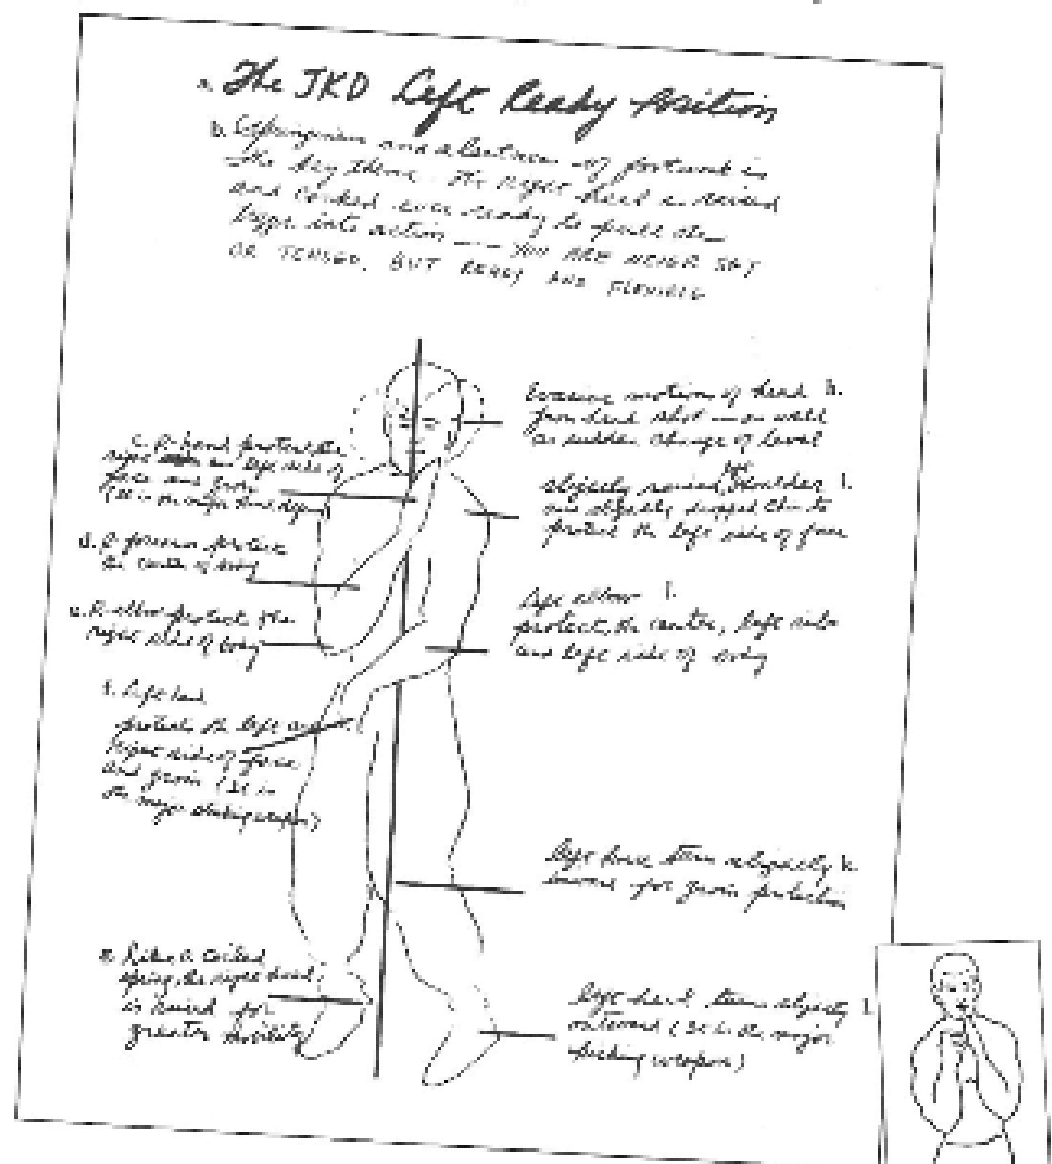 a. The JKD Left Ready Position
b. Springiness and alertness of footwork is
the key theme. The right heel is raised
and cocked ever ready to pull the
trigger into action --- YOU ARE NEVER SET
OR TENSED, BUT READY AND FLEXIBLE
c. R-hand protect the
right and left side of
face and groin
(It is the major hand defense)
d. R forearm protect
the center of body
e. R. elbow protect the
right side of body
f. Left hand
protects the left and
right side of face
and groin (It is
the major striking weapon)
g. Like a coiled
spring, the right heel
is raised for
greater mobility
Evasive motion of head h.
from head shot — as well
as sudden change of level
slightly raised left shoulder i.
and slightly dropped chin to
protect the left side of face
Left elbow j.
protect the center,
and left side of body
left knee turn slightly k.
inward for groin protection
left heel turn slightly l.
outward (It is the major
kicking weapon)